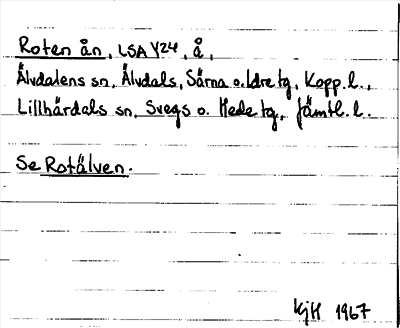 Roten ån, LSA Y24, å,
Älvdalens sn, Älvdals, Särna o. Idre tg, Kopp. l.,
Lillhärdals sn, Svegs o. Hede tg, Jämtl. l.
Se Rotälven.
KjH 1967